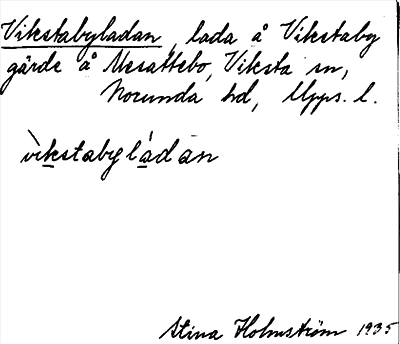 Vikstabyladan, lada å Vikstaby
gärde å Mesättebo, Viksta sn,
Norunda hd, Upps. l.
vìkstabyládan
Stina Holmström 1935